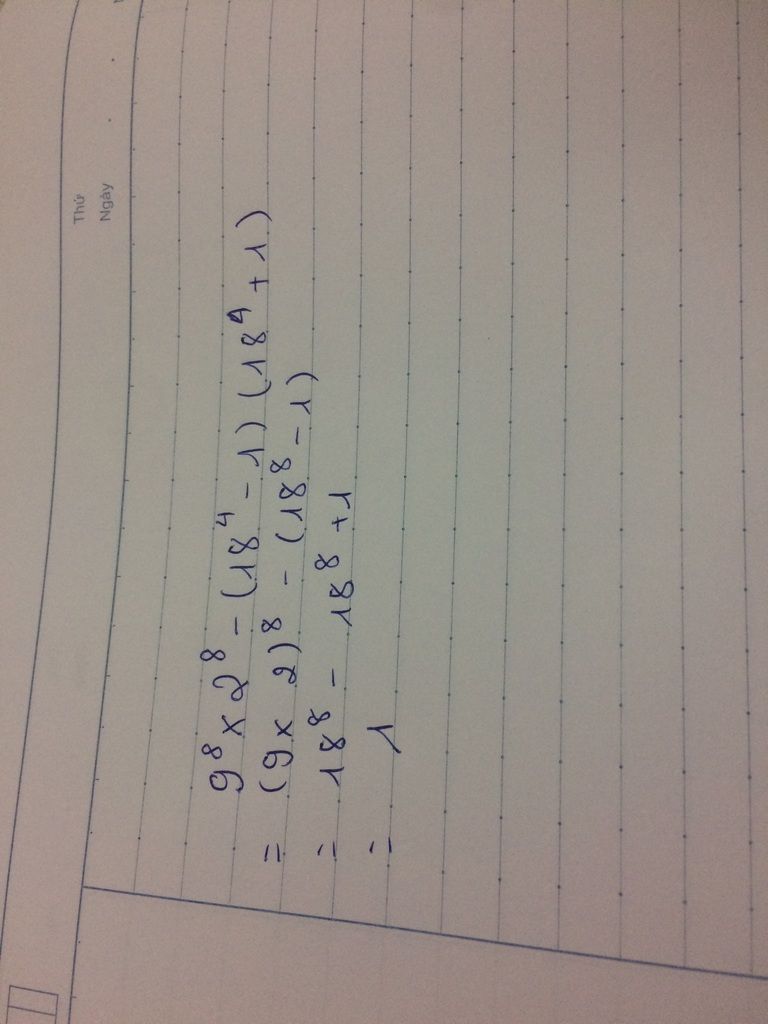 Thứ
Ngày
9⁸ x 2⁸ - (18⁴ - 1) (18⁴ + 1)
= (9 x 2)⁸ - (18⁸ - 1)
= 18⁸ - 18⁸ + 1
= 1